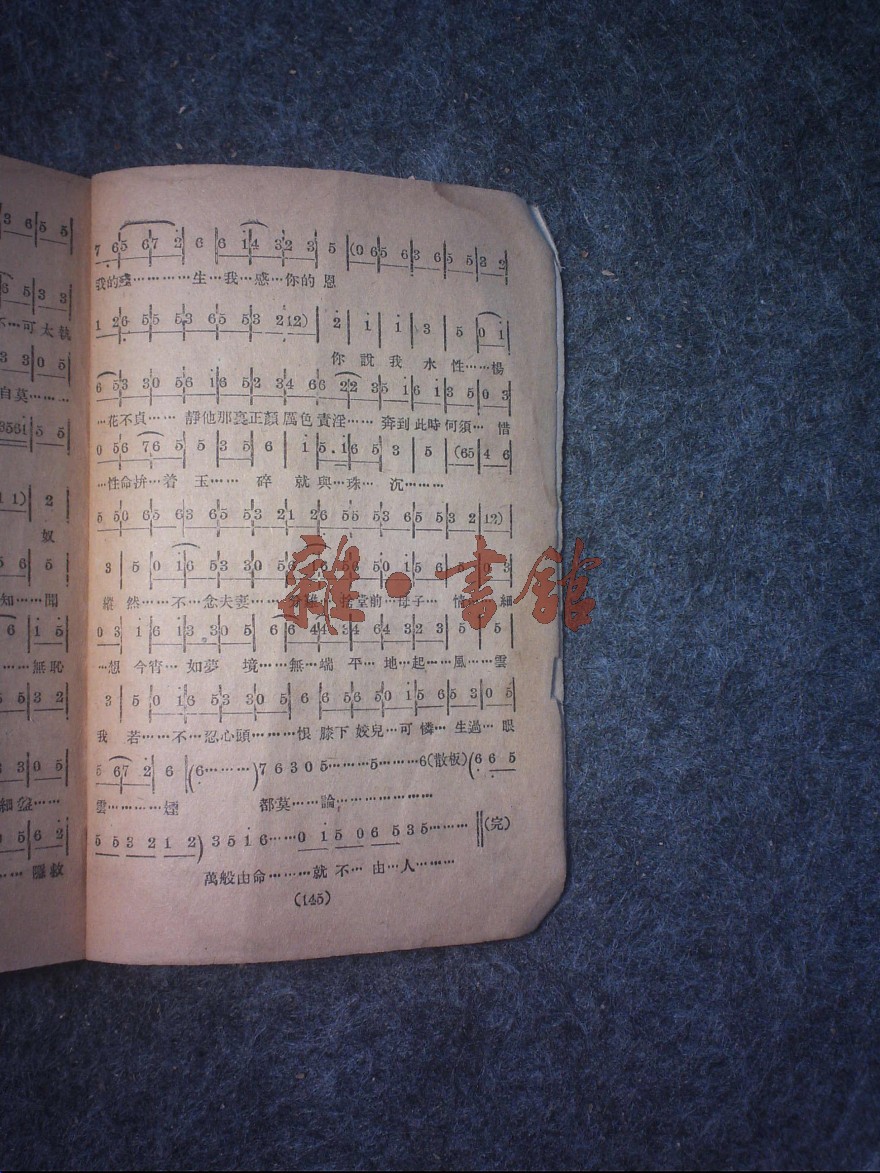 3 6 5 5
6 5 3 3
不…可太執
3 3 0 5
自莫………
3561 5 5
1 1) 2
奴
5 6 5
知……聞
6 1 5
……無恥
5 5 3 2
3 3 0 5
0 5 6 2
7 65 67 2 6 6 14 32 3 5 (0 65 63 65 53 2
我的…………生…我…感…你的恩
1 26 55 53 65 53 212) 2 1 1 3 5 0 1
你說我水性……楊
6 53 30 56 16 52 34 66 22 35 16 13 50 3
…花不貞……靜他那裏正顏厲色責淫……奔到此時何須…惜
0 56 76 5 5 3 5 6 1 5.16 5 3 5 (65 4 6
…性命拼…着玉……碎就與…珠…沉………
5 50 65 63 65 53 21 26 55 53 65 53 212)
3 5 0 16 53 30 56 16 56 50 15 65 0 3
縱然……不…念夫妻………堂前…母子…情…細
0 3 16 13 30 5 6 64 34 64 32 3 5 5
…想今宵…如夢境……無…端平…地…起……風……雲
3 5 0 16 53 30 5 6 6 56 50 15 65 30 5
我若……不…忍心頭………恨膝下姣兒…可憐…生過…眼
5 67 2 6 (6………)7 6 3 0 5………5……6(散板)(6 6 5
雲………煙都莫……論………………
5 5 3 2 1 2) 3 5 1 6……0 1 5 0 6 5 3 5…… (完)
萬般由命………就不…由…人………
(145)
雜·書館